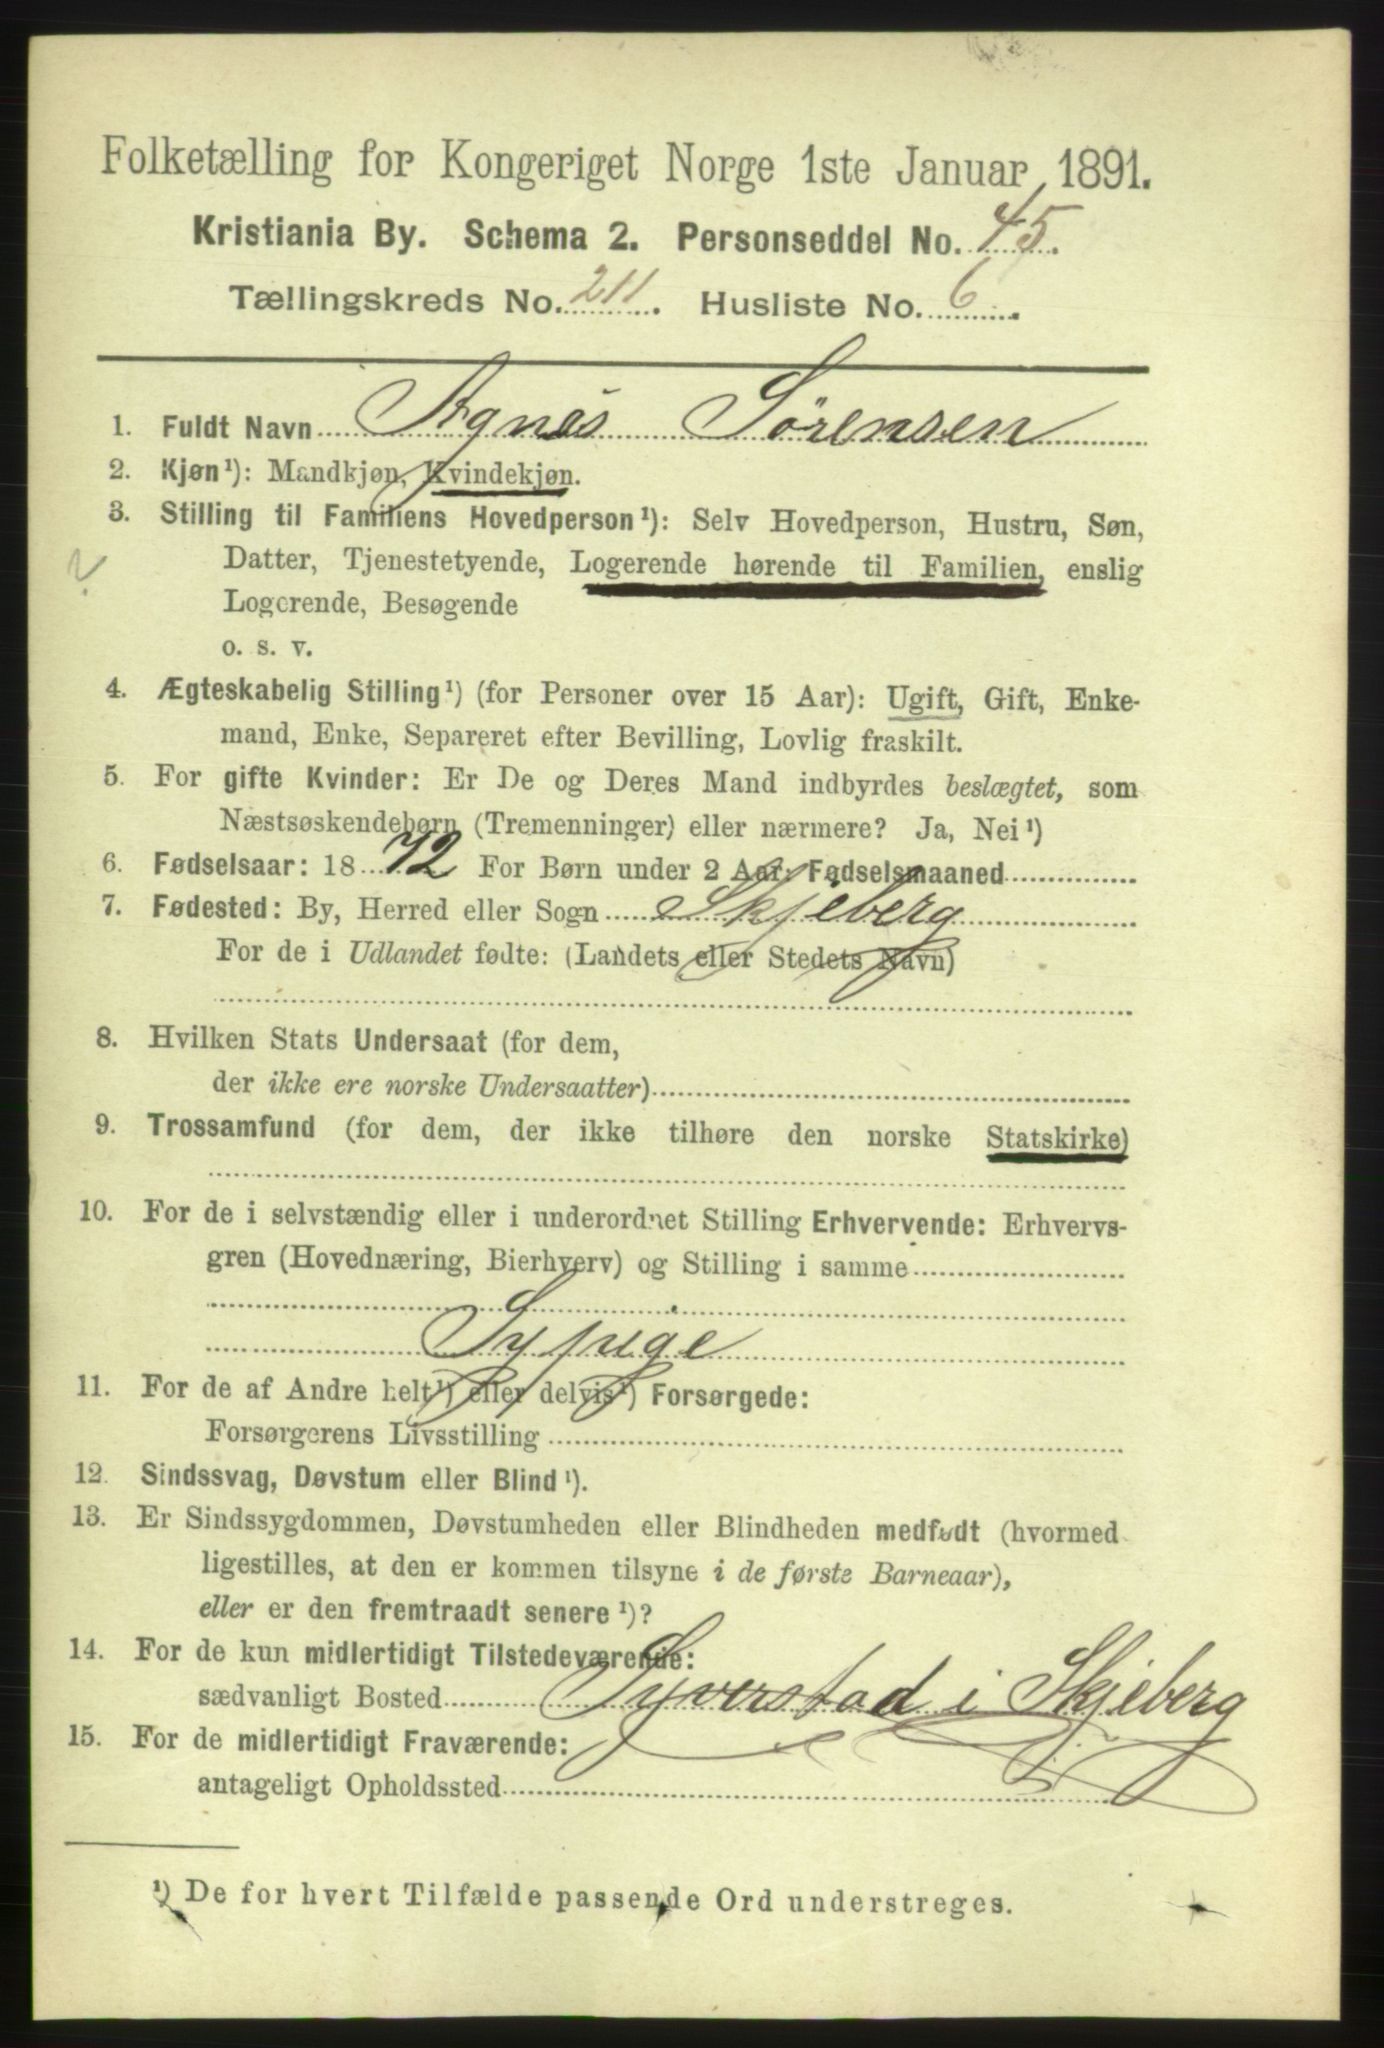 Folketælling for Kongeriget Norge 1ste Januar 1891.
Kristiania By. Schema 2. Personseddel No. 45.
Tællingskreds No. 211. Husliste No. 6.
1. Fuldt Navn Agnes Sørensen
2. Kjøn¹): Mandkjøn, Kvindekjøn.
3. Stilling til Familiens Hovedperson¹): Selv Hovedperson, Hustru, Søn,
Datter, Tjenestetyende, Logerende hørende til Familien, enslig
Logerende, Besøgende
o. s. v.
4. Ægteskabelig Stilling¹) (for Personer over 15 Aar): Ugift, Gift, Enke-
mand, Enke, Separeret efter Bevilling, Lovlig fraskilt.
5. For gifte Kvinder: Er De og Deres Mand indbyrdes beslægtet, som
Næstsøskendebørn (Tremenninger) eller nærmere? Ja, Nei¹)
6. Fødselsaar: 1872 For Børn under 2 Aar: Fødselsmaaned
7. Fødested: By, Herred eller Sogn Skjeberg
For de i Udlandet fødte: (Landets eller Stedets Navn)
8. Hvilken Stats Undersaat (for dem,
der ikke ere norske Undersaatter)
9. Trossamfund (for dem, der ikke tilhøre den norske Statskirke)
10. For de i selvstændig eller i underordnet Stilling Erhvervende: Erhvervs-
gren (Hovednæring, Bierhverv) og Stilling i samme
Sypige
11. For de af Andre helt¹) eller delvis¹) Forsørgede:
Forsørgerens Livsstilling
12. Sindssvag, Døvstum eller Blind¹).
13. Er Sindssygdommen, Døvstumheden eller Blindheden medfødt (hvormed
ligestilles, at den er kommen tilsyne i de første Barneaar),
eller er den fremtraadt senere¹)?
14. For de kun midlertidigt Tilstedeværende:
sædvanligt Bosted Syverstad i Skjeberg
15. For de midlertidigt Fraværende:
antageligt Opholdssted
¹) De for hvert Tilfælde passende Ord understreges.